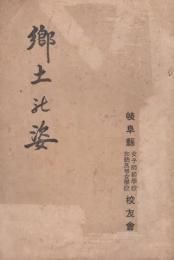 鄉土の姿
岐阜縣
女子師範學校
加納高等女學校
校友會